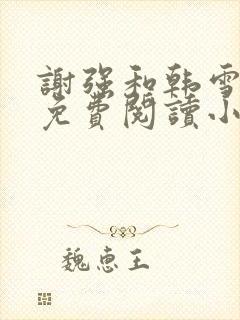 謝強和韩雪
免費閱讀小
魏惠王